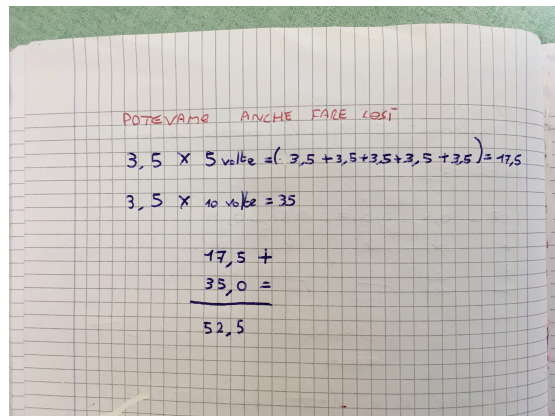 POTEVAMO ANCHE FARE COSÌ
3,5 × 5 volte = ( 3,5 + 3,5 + 3,5 + 3,5 + 3,5 ) = 17,5
3,5 × 10 volte = 35
17,5 +
35,0 =
52,5